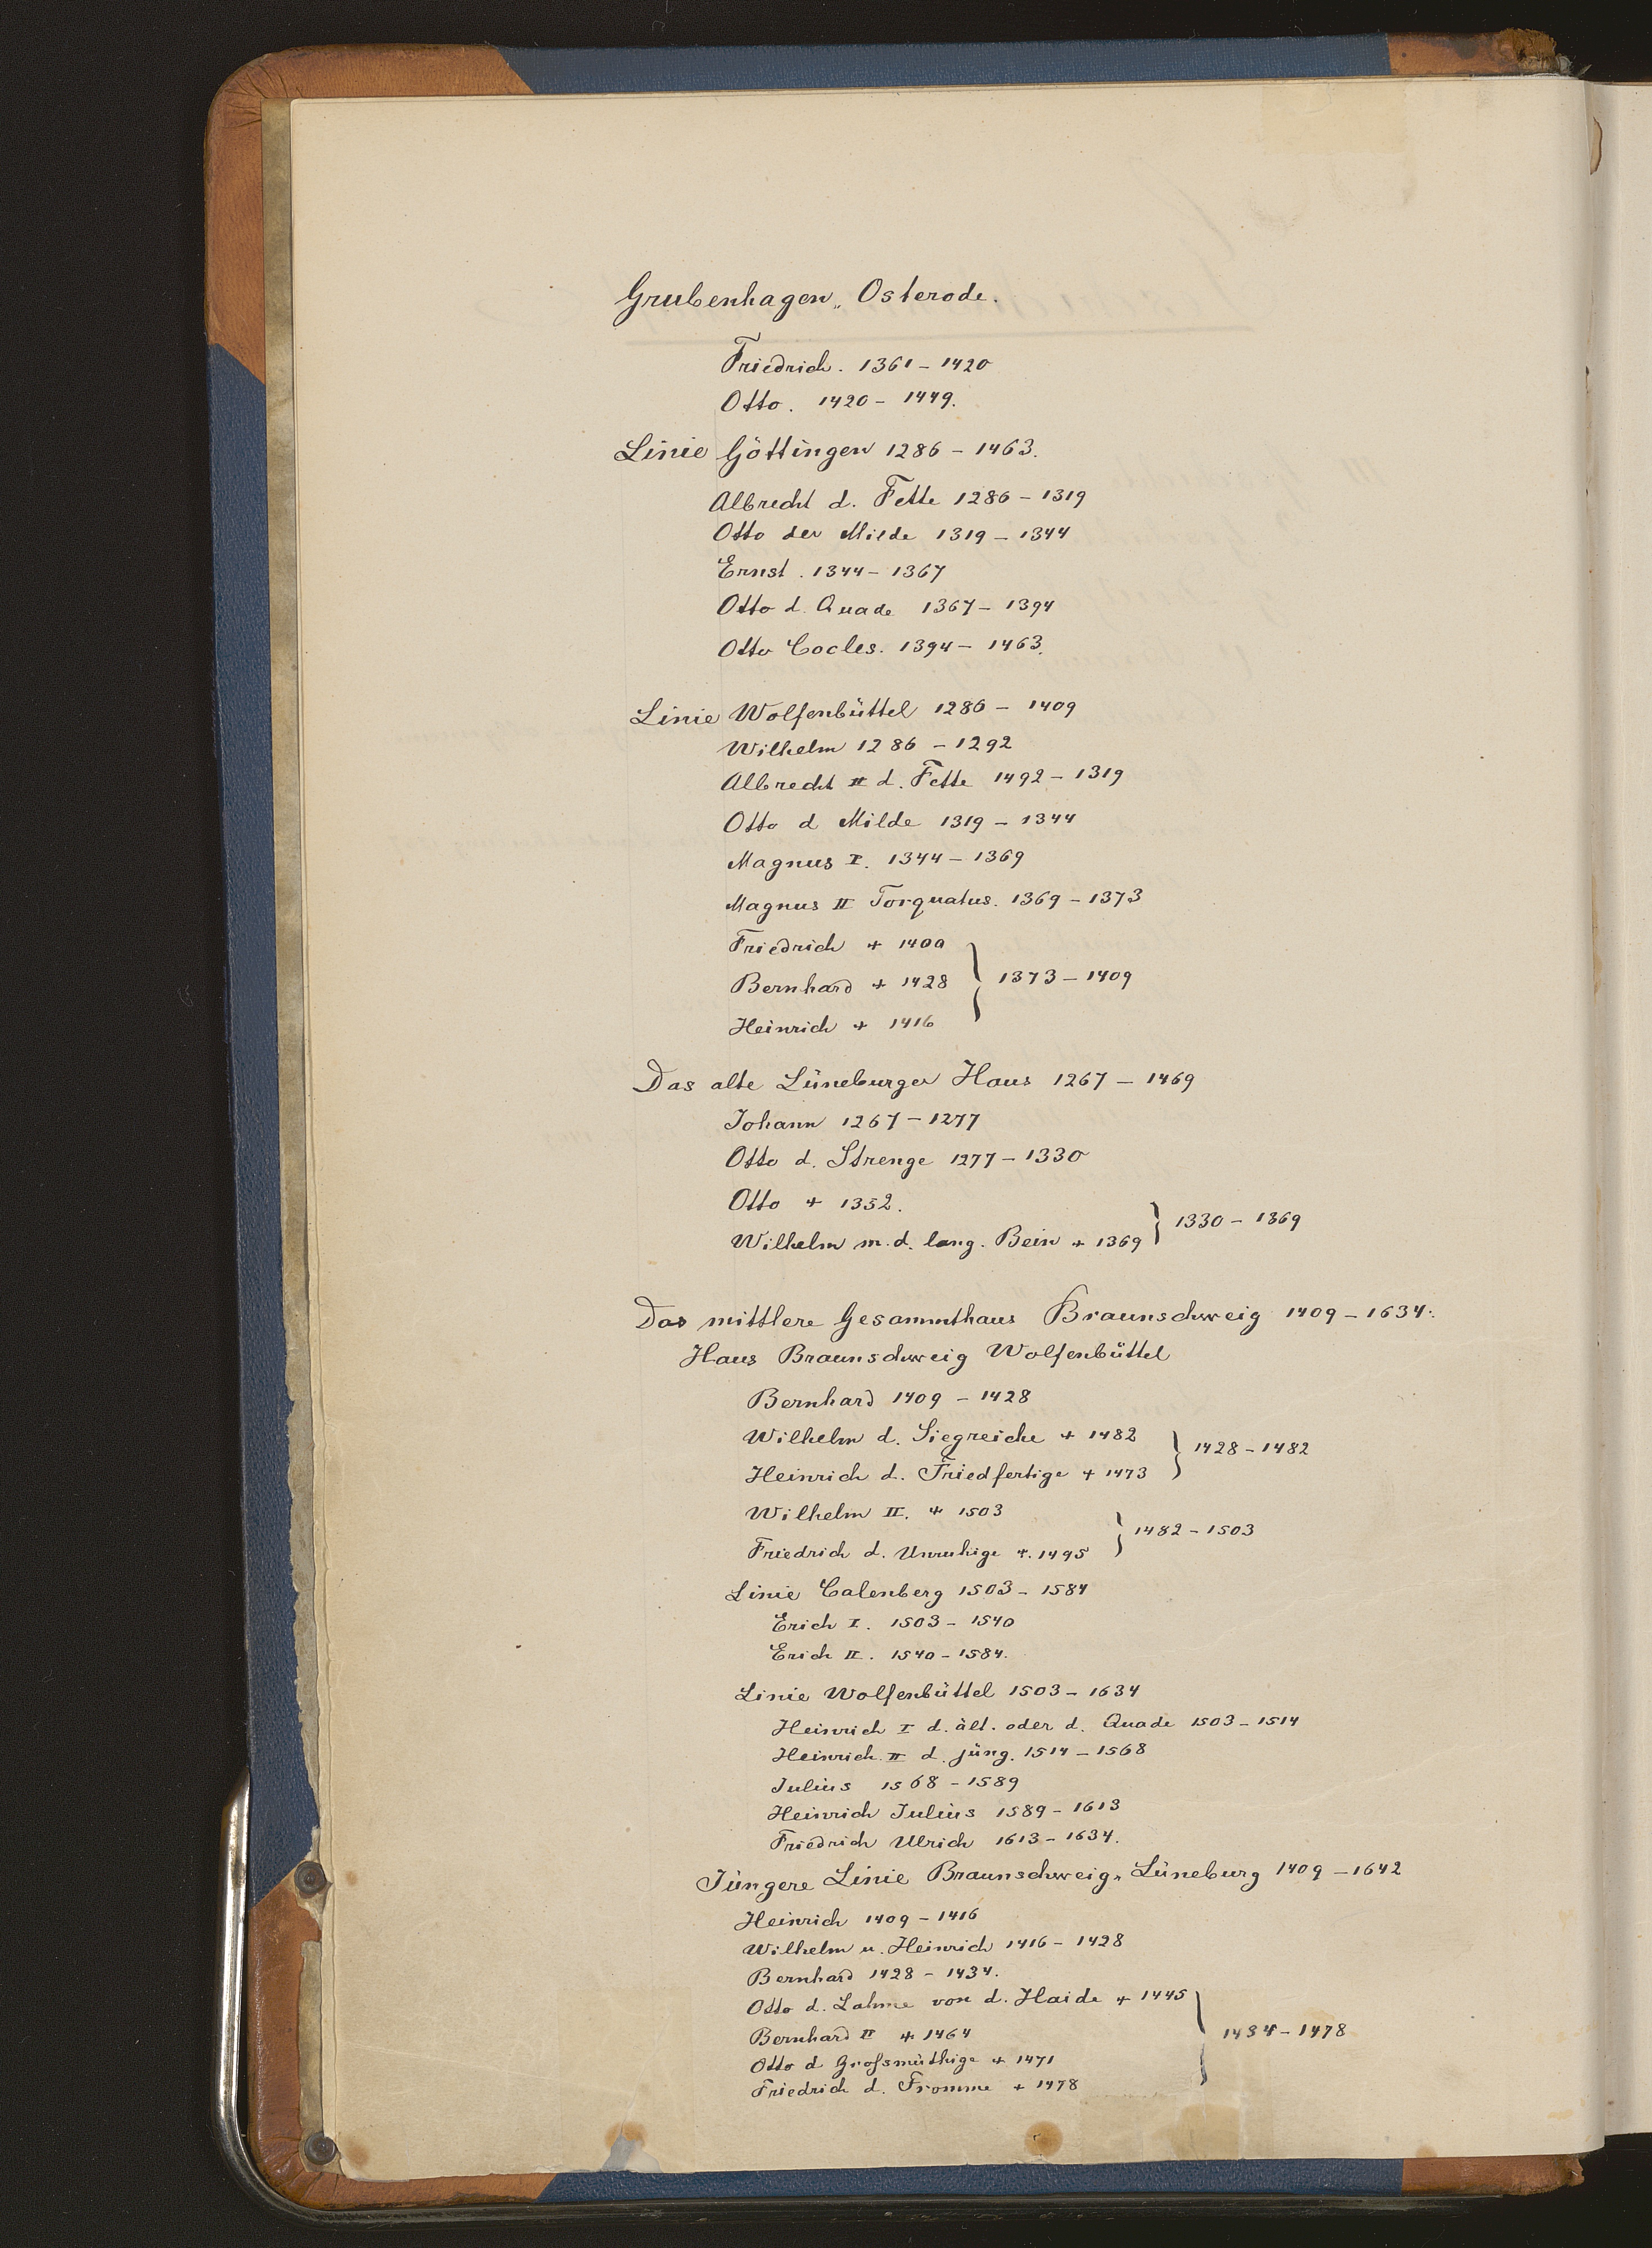 Grubenhagen „ Osterode.
Friedrich. 1361 – 1420
Otto. 1420 – 1449.
Linie Göttingen 1286 – 1463.
Albrecht d. Fette 1286 – 1319
Otto der Milde 1319 – 1344
Ernst. 1344 – 1367
Otto d. Quade 1367 – 1394
Otto Cocles. 1394 – 1463.
Linie Wolfenbüttel 1286 – 1409
Wilhelm 1286 – 1292
Albrecht II d. Fette 1492 – 1319
Otto d Milde 1319 – 1344
Magnus I. 1344 – 1369
Magnus II Torquatus. 1369 – 1373
Friedrich + 1400
Bernhard + 1428 } 1373 – 1409
Heinrich + 1416
Das alte Lüneburger Haus 1267 – 1469
Johann 1267 – 1277
Otto d. Strenge 1277 – 1330
Otto + 1352.
Wilhelm m. d. lang. Bein + 1369 } 1330 – 1369
Das mittlere Gesammthaus Braunschweig 1409 – 1634.
Haus Braunschweig Wolfenbüttel
Bernhard 1409 – 1428
Wilhelm d. Siegreiche + 1482
Heinrich d. Friedfertige + 1473 } 1428 – 1482
Wilhelm II. + 1503
Friedrich d. Unruhige +. 1495 } 1482 – 1503
Linie Calenberg 1503 – 1584
Erich I. 1503 – 1540
Erich II. 1540 – 1584.
Linie Wolfenbüttel 1503 – 1634
Heinrich I d. ält. oder d. Quade 1503 – 1514
Heinrich II d. jüng. 1514 – 1568
Julius 1568 – 1589
Heinrich Julius 1589 – 1613
Friedrich Ulrich 1613 – 1634.
Jüngere Linie Braunschweig „ Lüneburg 1409 – 1642
Heinrich 1409 – 1416
Wilhelm u. Heinrich 1416 – 1428
Bernhard 1428 – 1434.
Otto d. Lahme von d. Haide + 1445
Bernhard II + 1464 } 1434 – 1478
Otto d Großmüthige + 1471
Friedrich d. Fromme + 1478